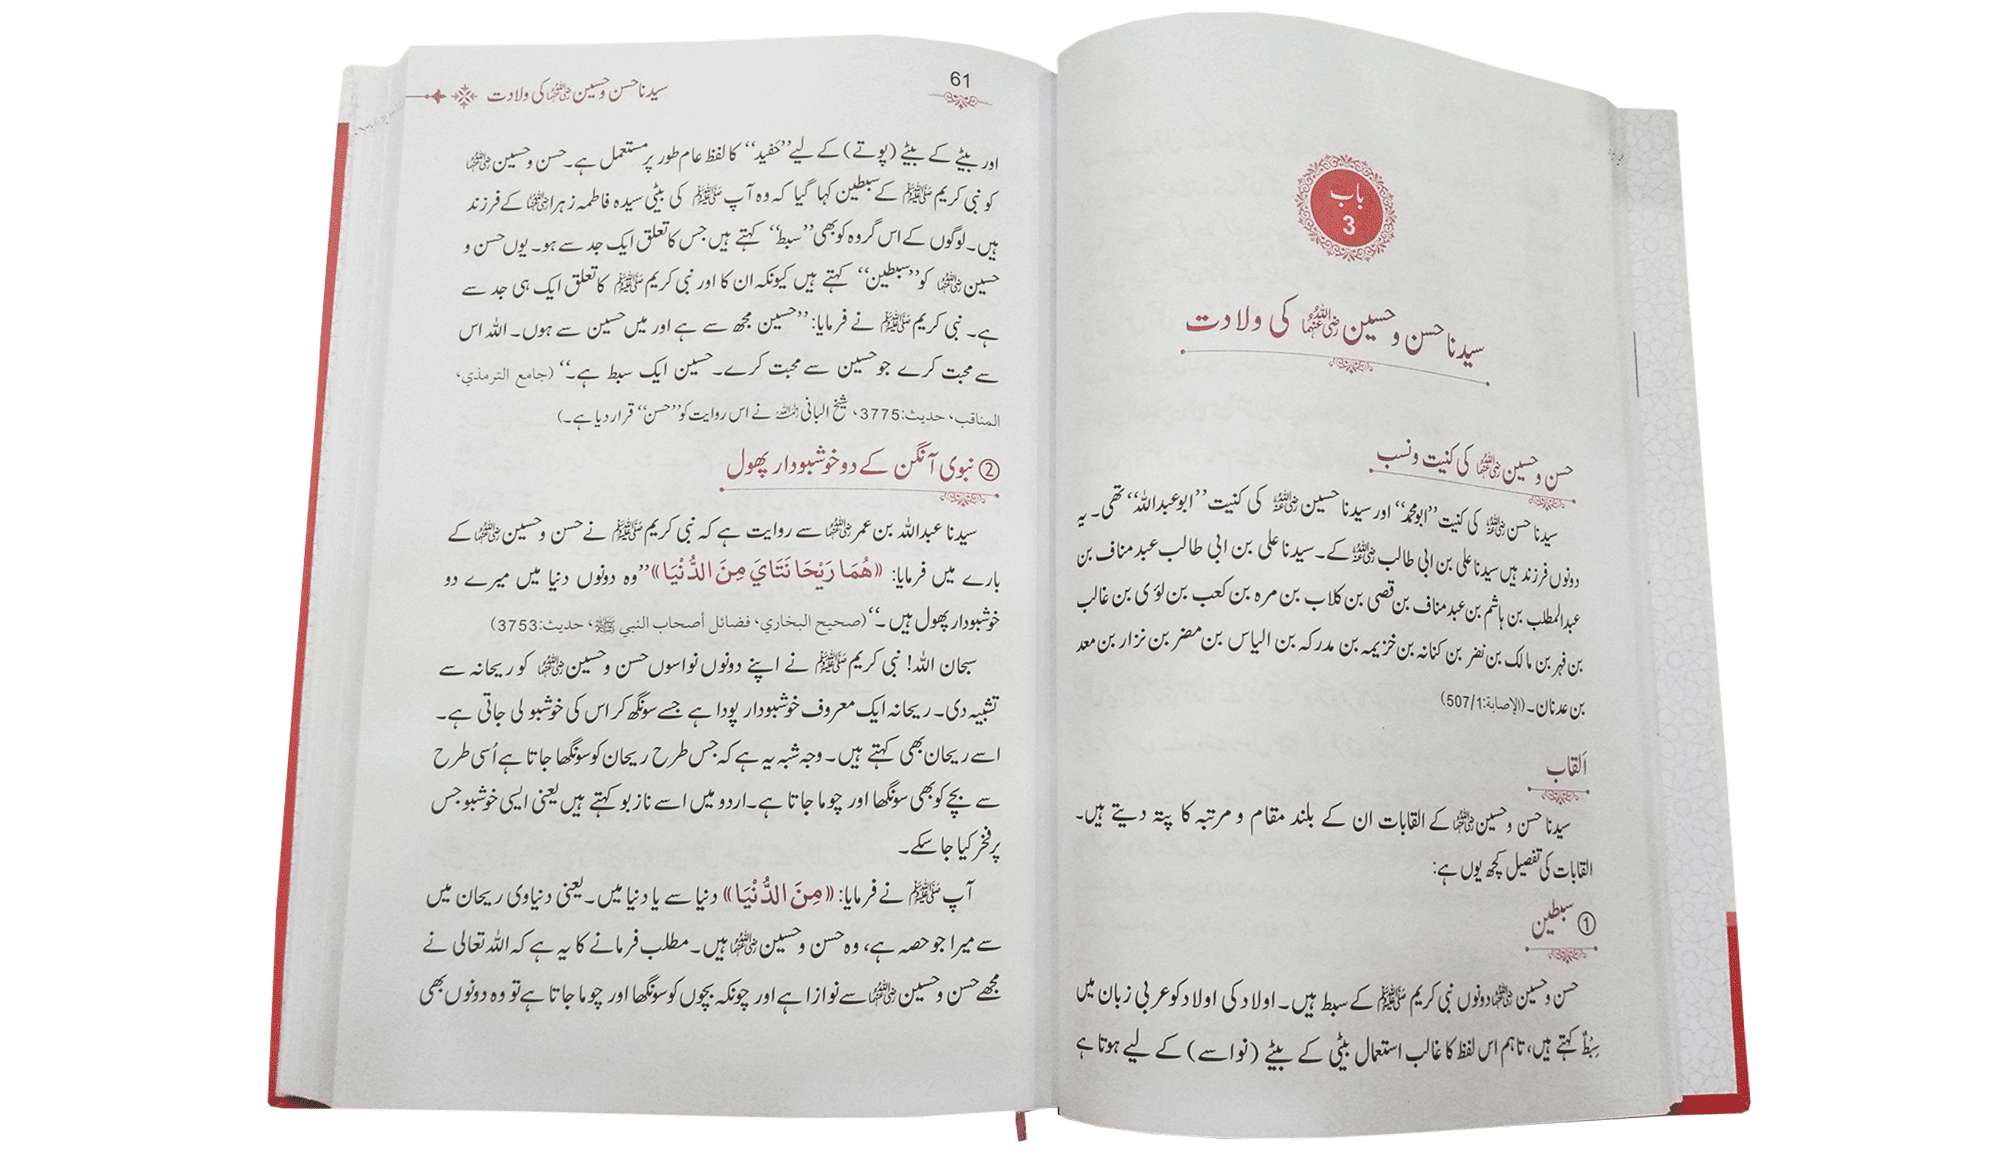 باب
3
سیدنا حسن و حسین رضی اللہ عنہما کی ولادت
حسن و حسین رضی اللہ عنہما کی کنیت و نسب
سیدنا حسن رضی اللہ عنہ کی کنیت ’’ابو محمد‘‘ اور سیدنا حسین رضی اللہ عنہ کی کنیت ’’ابو عبداللہ‘‘ تھی۔ یہ
دونوں فرزند ہیں سیدنا علی بن ابی طالب رضی اللہ عنہ کے۔ سیدنا علی بن ابی طالب عبدمناف بن
عبدالمطلب بن ہاشم بن عبد مناف بن قصی بن کلاب بن مرہ بن کعب بن لؤی بن غالب
بن فہر بن مالک بن نضر بن کنانہ بن خزیمہ بن مدرکہ بن الیاس بن مضر بن نزار بن معد
بن عدنان۔ (الإصابة:507/1)
اَلقاب
سیدنا حسن و حسین رضی اللہ عنہما کے القابات ان کے بلند مقام و مرتبہ کا پتہ دیتے ہیں۔
القابات کی تفصیل کچھ یوں ہے:
① سبطین
حسن و حسین رضی اللہ عنہما دونوں نبی کریم ﷺ کے سبط ہیں۔ اولاد کی اولاد کو عربی زبان میں
سِبْطٌ کہتے ہیں، تاہم اس لفظ کا غالب استعمال بیٹی کے بیٹے (نواسے) کے لیے ہوتا ہے
61
سیدنا حسن و حسین رضی اللہ عنہما کی ولادت
اور بیٹے کے بیٹے (پوتے) کے لیے ’’حَفید‘‘ کا لفظ عام طور پر مستعمل ہے۔ حسن و حسین رضی اللہ عنہما
کو نبی کریم ﷺ کے سبطین کہا گیا کہ وہ آپ ﷺ کی بیٹی سیدہ فاطمہ زہرا رضی اللہ عنہا کے فرزند
ہیں۔ لوگوں کے اس گروہ کو بھی ’’سبط‘‘ کہتے ہیں جس کا تعلق ایک جد سے ہو۔ یوں حسن و
حسین رضی اللہ عنہما کو ’’سبطین‘‘ کہتے ہیں کیونکہ ان کا اور نبی کریم ﷺ کا تعلق ایک ہی جد سے
ہے۔ نبی کریم ﷺ نے فرمایا: ’’حسین مجھ سے ہے اور میں حسین سے ہوں۔ اللہ اس
سے محبت کرے جو حسین سے محبت کرے۔ حسین ایک سبط ہے۔‘‘ (جامع الترمذي،
المناقب، حدیث:3775، شیخ البانی رحمہ اللہ نے اس روایت کو ’’حسن‘‘ قرار دیا ہے۔)
② نبوی آنگن کے دو خوشبودار پھول
سیدنا عبداللہ بن عمر رضی اللہ عنہما سے روایت ہے کہ نبی کریم ﷺ نے حسن و حسین رضی اللہ عنہما کے
بارے میں فرمایا: «هُمَا رَيْحَانَتَايَ مِنَ الدُّنْيَا» ’’وہ دونوں دنیا میں میرے دو
خوشبودار پھول ہیں۔‘‘ (صحيح البخاري، فضائل أصحاب النبي ﷺ، حديث:3753)
سبحان اللہ! نبی کریم ﷺ نے اپنے دونوں نواسوں حسن و حسین رضی اللہ عنہما کو ریحانہ سے
تشبیہ دی۔ ریحانہ ایک معروف خوشبودار پودا ہے جسے سونگھ کر اس کی خوشبو لی جاتی ہے۔
اسے ریحان بھی کہتے ہیں۔ وجہ شبہ یہ ہے کہ جس طرح ریحان کو سونگھا جاتا ہے اُسی طرح
سے بچے کو بھی سونگھا اور چوما جاتا ہے۔ اردو میں اسے نازبو کہتے ہیں یعنی ایسی خوشبو جس
پر فخر کیا جا سکے۔
آپ ﷺ نے فرمایا: «مِنَ الدُّنْيَا» دنیا سے یا دنیا میں۔ یعنی دنیاوی ریحان میں
سے میرا جو حصہ ہے، وہ حسن و حسین رضی اللہ عنہما ہیں۔ مطلب فرمانے کا یہ ہے کہ اللہ تعالی نے
مجھے حسن و حسین رضی اللہ عنہما سے نوازا ہے اور چونکہ بچوں کو سونگھا اور چوما جاتا ہے تو وہ دونوں بھی